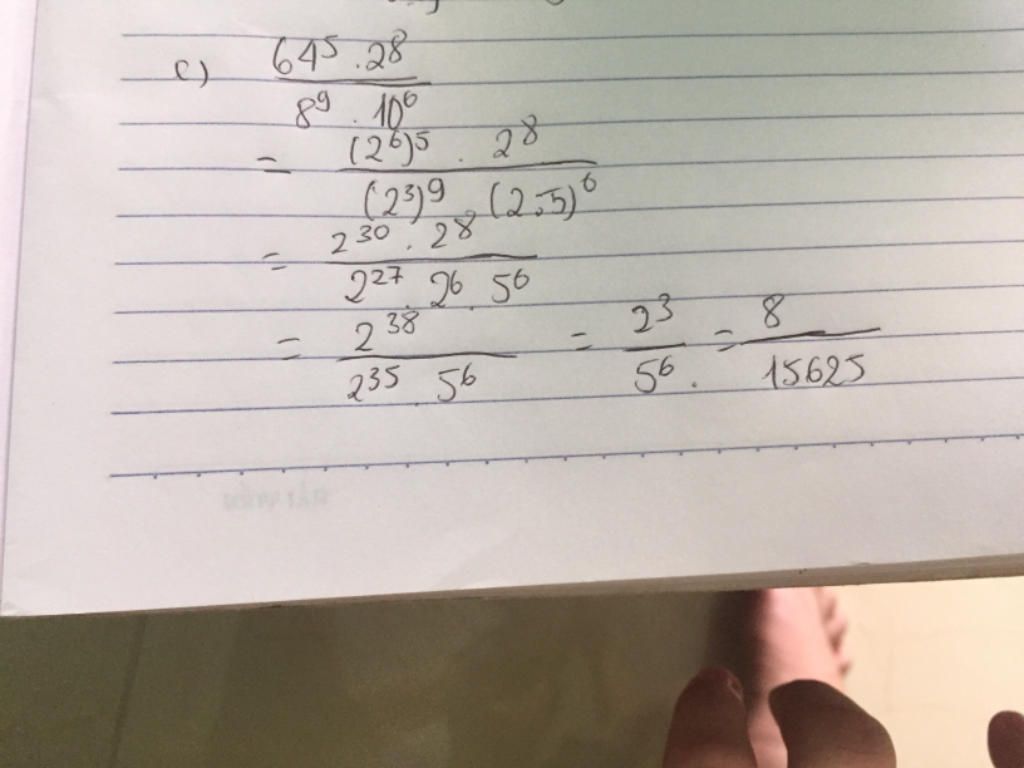 c) 64⁵ . 2⁸
8⁹ . 10⁶
= (2⁶)⁵ . 2⁸
(2³)⁹ . (2.5)⁶
= 2³⁰ . 2⁸
2²⁷ . 2⁶ . 5⁶
= 2³⁸ = 2³ = 8
2³⁵ . 5⁶ 5⁶ . 15625